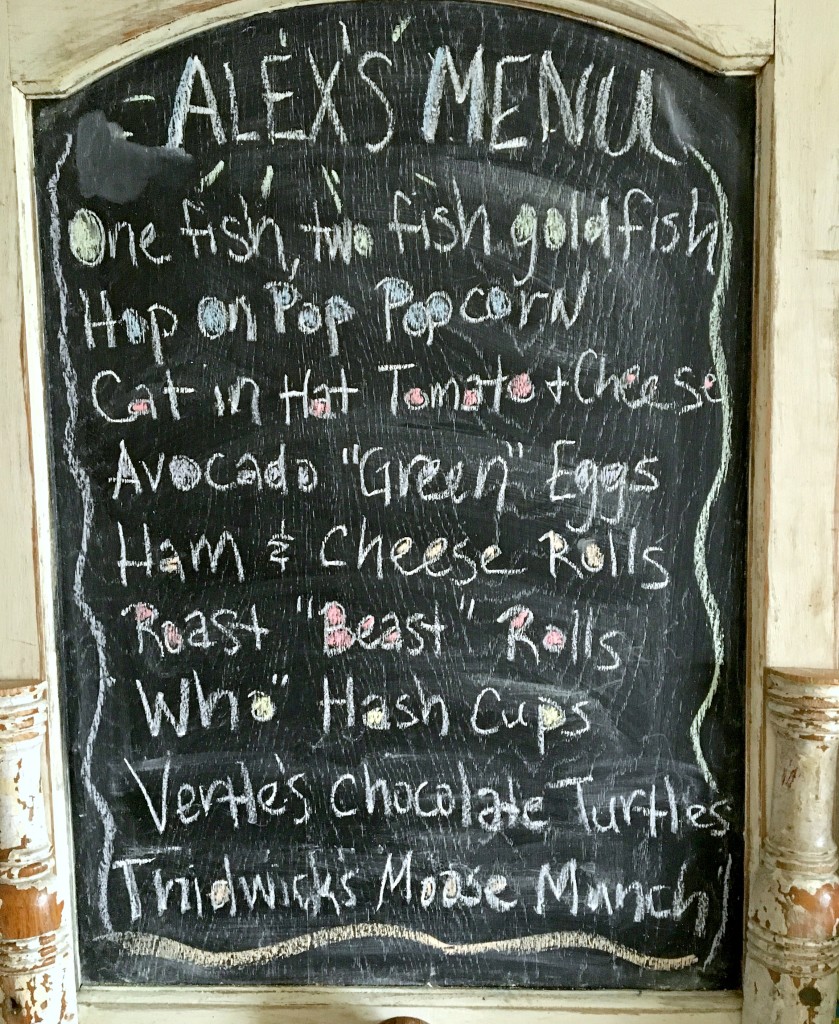 ALEX'S MENU
One fish, two fish goldfish
Hop on Pop Popcorn
Cat in Hat Tomato + Cheese
Avocado "Green" Eggs
Ham & Cheese Rolls
Roast "Beast" Rolls
Who" Hash Cups
Vertle's Chocolate Turtles
Thidwick's Moose Munch